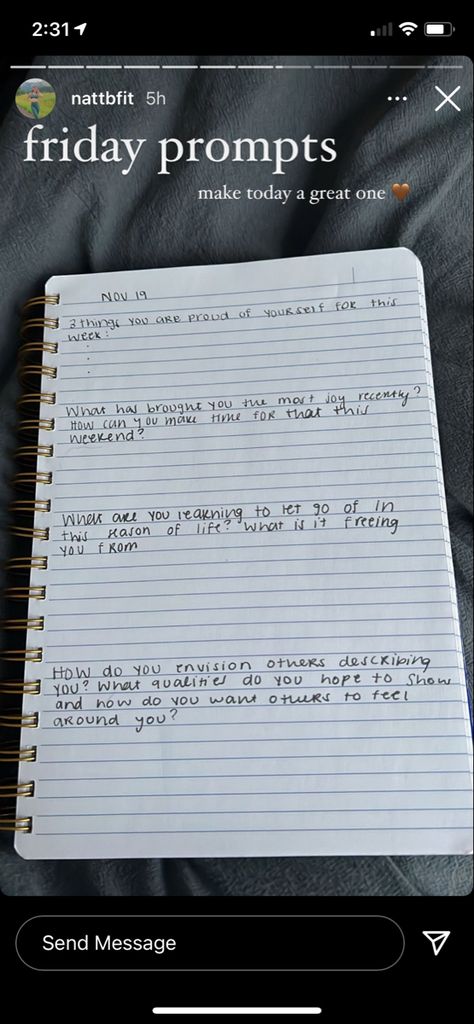 2:31
nattbfit 5h
friday prompts
make today a great one
NOV 19
3 things you are proud of yourself for this
week:
What has brought you the most joy recently?
How can you make time for that this
weekend?
What are you learning to let go of in
this season of life? What is it freeing
you from
How do you envision others describing
you? What qualities do you hope to show
and how do you want others to feel
around you?
Send Message